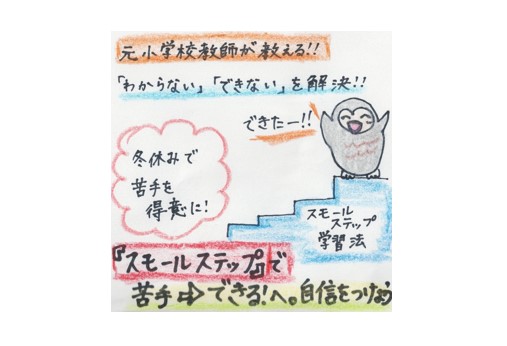 元小学校教師が教える!!
「わからない」「できない」を解決!!
できたー!!
冬休みで
苦手を
得意に!
スモール
ステップ
学習法
『スモールステップ』で
苦手⇨できる!へ。自信をつけよう